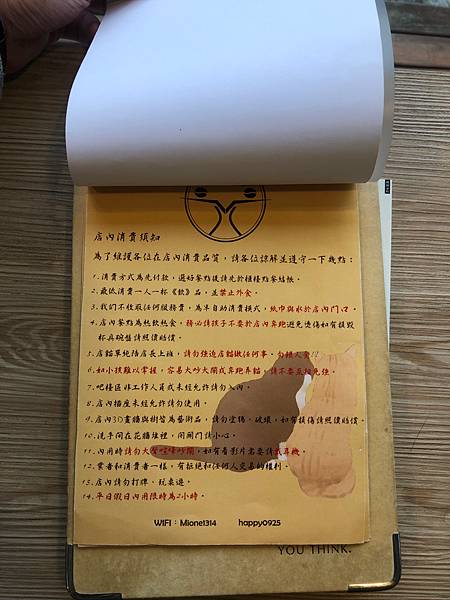 店內消費須知
為了維護各位在店內消費品質，請各位諒解並遵守一下幾點：
1.消費方式為先付款，選好餐點後請先於櫃檯點餐結帳。
2.最低消費一人一杯《飲》品，並禁止外食。
3.我們不收取任何服務費，為半自助消費模式，紙巾與水於店內門口。
4.店內餐點為熱飲熱食，務必請孩子不要於店內奔跑避免燙傷如有損毀
杯具碗盤請照價賠償。
5.店貓單純陪店長上班，請勿強迫店貓做任何事，勿餵人食!!!
6.如小孩難以掌握，容易大吵大鬧或奔跑弄貓，請不要至抱免強。
7.吧檯區非工作人員或未經允許請勿入內。
8.店內插座未經允許請勿使用。
9.店內3D畫牆與樹皆為藝術品，請勿塗鴉、破壞，如有損傷請照價賠償。
10.洗手間在花牆堆裡，開關門請小心。
11.內用時請勿大聲喧嘩吵鬧，如有看影片需要請戴耳機。
12.業者和消費者一樣，有拒絕和任何人交易的權利。
13.店內請勿打牌、玩桌遊。
14.平日假日內用限時為2小時。
WIFI：Mione1314 happy0925
YOU THINK.